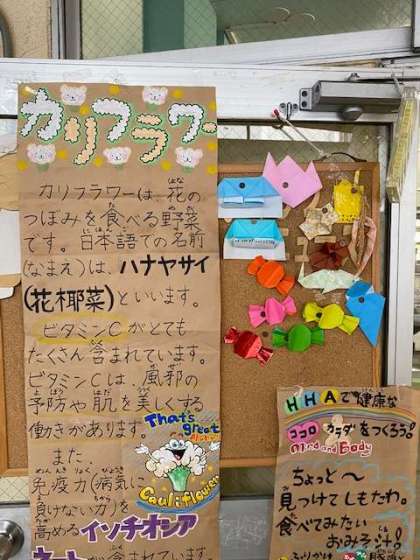 カリフラワー
カリフラワーは、花の
つぼみを食べる野菜
です。日本語での名前
(なまえ)は、ハナヤサイ
(花椰菜)といいます。
ビタミンCがとても
たくさん含まれています。
ビタミンCは、風邪の
予防や肌を美しくする
働きがあります。
また、
免疫力(病気に
負けない力)を
高めるイソチオシア
That's
great
Cauliflower
HHAで健康な
ココロ カラダをつくろう!
Mind and Body
ちょっと〜
見つけてしもたわ。
食べてみたい
おみそ汁!